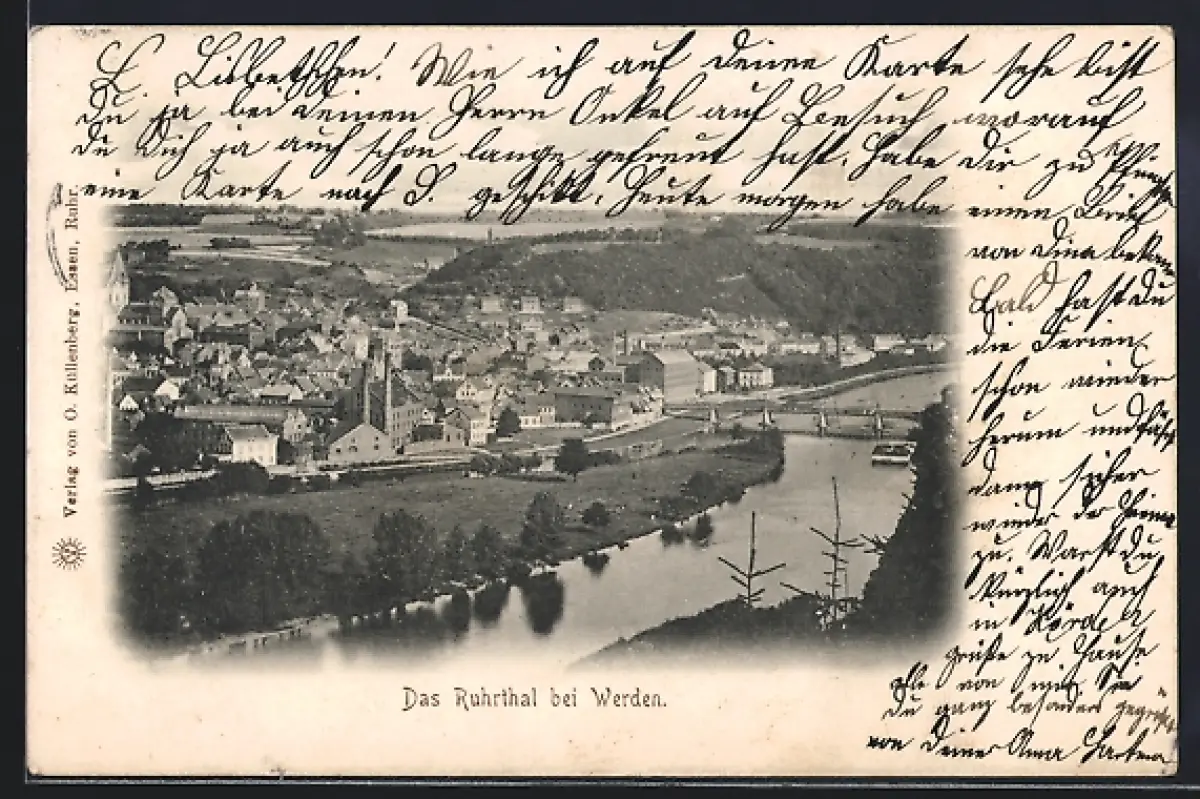 L. Lisbethchen! Wie ich auf deine Karte sehe bist
du ja bei deinen Herrn Onkel auf Besuch worauf
du dich ja auch schon lange gefreut hast. Habe dir zu Pfingsten
eine Karte nach geschikt. Heute morgen habe einen Brief
von Dina bekom
Bald hast du
die Ferien
schon wieder
herum und
dann
wieder der Heimat
zu. Warst du
kürzlich auch
in
grüße zu Hause
alle von mir. Sei
du ganz besonders gegrüßt
von deiner Oma
Verlag von O. Küllenberg, Essen, Ruhr.
Das Ruhrthal bei Werden.